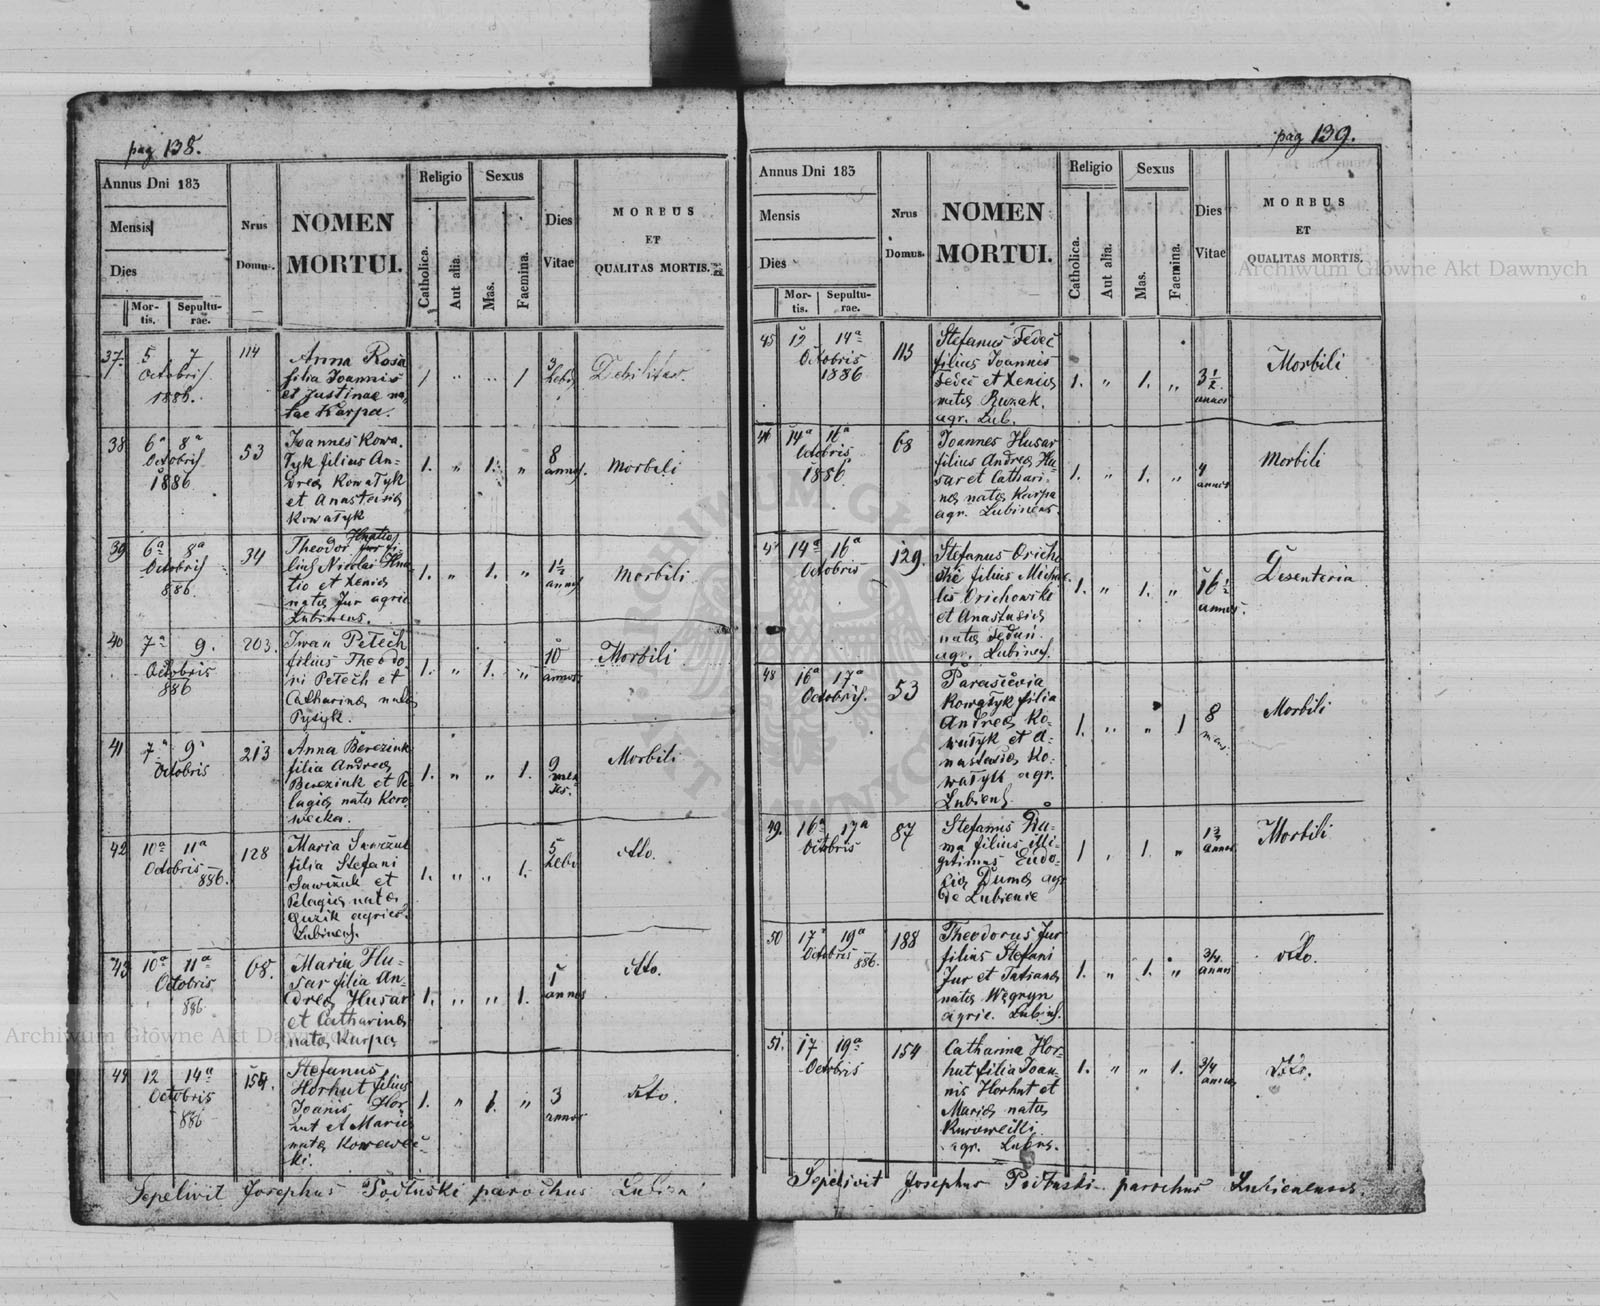 pag 138.
Annus Dni 183
Mensis
Dies
Mortis.
Sepulturae.
Nrus Domus.
NOMEN
MORTUI.
Religio
Catholica.
Aut alia.
Sexus
Mas.
Faemina.
Dies
Vitae
MORBUS
ET
QUALITAS MORTIS.
37. 5 7 114
Octobris
1886.
Anna Rosa
filia Joannis
et Justinae na-
tae Karpa.
1 " " 1
3 hebd.
Debilitas.
38 6a 8a 53
Octobris
1886
Joannes Kowa-
łyk filius An-
dreae Kowałyk
et Anastasiae
Kowałyk
1. " 1. "
8
annos.
Morbili
39 6a 8a 34
Octobris
886
Theodor Hnatio
lius Nicolai Hna-
tio et Xeniae
natae Jur agric
Lubinens.
1. " 1. "
1½
annos
Morbili
40 7a 9. 203.
Octobris
886
Iwan Petech
filius Theodo-
ri Petech et
Catharinae natae
1. " 1. "
10
annos
Morbili
41 7a 9a 213
Octobris
Anna Bereziuk
filia Andreae
Bereziuk et Pe-
lagiae natae Koro-
wecka.
1. " " 1.
9
men
ses.
Morbili
42 10a 11a 128
Octobris
886.
Maria
filia Stefani
et
Pelagiae natae
Guzik agric.
Lubinens.
1. " " 1.
5
hebd
dtto.
43 10a 11a 68.
Octobris
886
Maria Hu-
sar filia An-
dreae Husar
et Catharinae
natae Karpa
1. " " 1.
1
annos
dtto.
44 12 14a 154.
Octobris
886
Stefanus
Horhut filius
Joanis Hor-
hut et Mariae
natae
ki.
1. " 1. "
3
annos
dtto.
Sepelivit Josephus Podłuski parochus
pag 139.
Annus Dni 183
Mensis
Dies
Mortis.
Sepulturae.
Nrus
Domus.
NOMEN
MORTUI.
Religio
Catholica.
Aut alia.
Sexus
Mas.
Faemina.
Dies
Vitae
MORBUS
ET
QUALITAS MORTIS.
45 12 14a 113
Octobris
1886
Stefanus Fedec
filius Joannis
Fedec et Xeniae
natae Ruzak.
agr. Lub.
1. " 1. "
3½
annos
Morbili
46 14a 16a 68
Octobris
1886
Joannes Husar
filius Andreae Hu-
sar et Cathari-
nae natae Karpa
agr. Lubinens.
1. " 1. "
4
annos
Morbili
47 14a 16a 129.
Octobris
Stefanus Oricho
filius Micha-
lis Orichowski
et Anastasiae
natae
agr. Lubinens.
1. " 1. "
16½
annos.
Desenteria
48 16a 17a 53
Octobris.
Parascevia
Kowałyk filia
Andreae Ko-
wałyk et A-
nastasiae Ko-
wałyk agr.
Lubiens.
1. " " 1
8
mens.
Morbili
49. 16a 17a 87
Octobris
Stefanus Du-
ma filius illi-
gitimus Eudo-
ciae Duma agr
de Lubienie
1 " 1. "
annos
Morbili
50 17a 19a 188
Octobris
886.
Theodorus Jur
filius Stefani
Jur et Tatianae
natae Węgryn
agric. Lubins.
1. " 1. "
3/4
annos
dtto.
51. 17 19a 154
Octobris
Catharina Hor-
hut filia Joan-
nis Horhut et
Mariae natae
agr. Lubns.
1. " " 1.
3/4
annos
dtto.
Sepelivit Josephus Podłuski parochus Lubienensis.
Archiwum Główne Akt Dawnych
Archiwum Główne Akt Dawnych